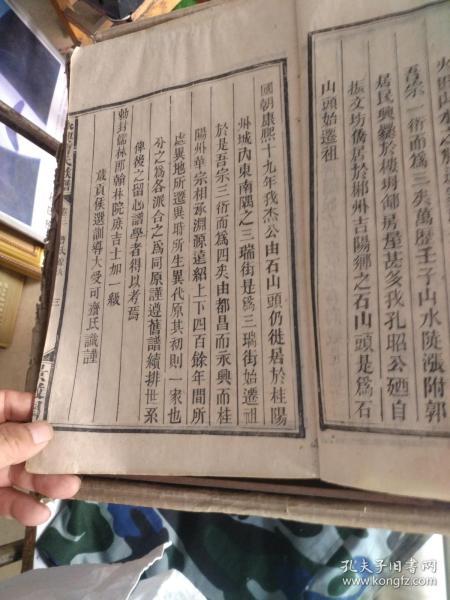 吾宗一衍而爲二矣萬歷壬子山水陡漲附郭
居民興釁於樓埛鄉房屋甚多我孔昭公廼自
振文坊僑居於郴州吉陽鄉之石山頭是爲石
山頭始遷祖
國朝康熙十九年我杰公由石山頭仍徙居於桂陽
州城內東南隅之三瑞街是爲三瑞街始遷祖
於是吾宗三衍而爲四矣由都昌而永興而桂
陽州華宗相承淵源遠紹上下四百餘年間所
處異地所遷異時所生異代原其初則一家也
分之爲各派合之爲同原謹遵舊譜續排世系
俾後之留心譜學者得以考焉
勅封儒林郎翰林院庶吉士加一級
歲貢候選訓導大受可齋氏識謹
三
孔夫子旧书网
www.kongfz.com